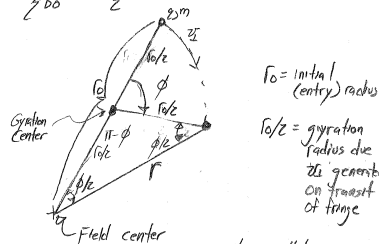 2
q, m
v⊥
r0/2
ϕ
r0
r0/2
Gyration
Center
π-ϕ
r0/2
ϕ/2
r
ϕ/2
Field center
r0 = initial
(entry) radius
r0/2 = gyration
radius due
v⊥ generate
on transit
of fringe